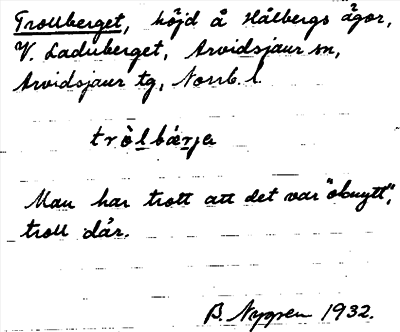 Trollberget, höjd å Hålbergs ägor,
V. Laduberget, Arvidsjaur sn,
Arvidsjaur tg, Norrb. l.
tròlbærje
Man har trott att det var "obnytt",
troll där.
B. Nygren 1932.